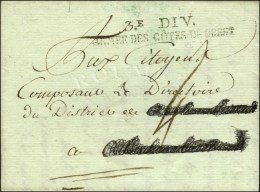 3.E DIV.
ARMÉE DES CÔTES DE BREST
Aux Citoyens
Composant Le Directoire
du District de
a